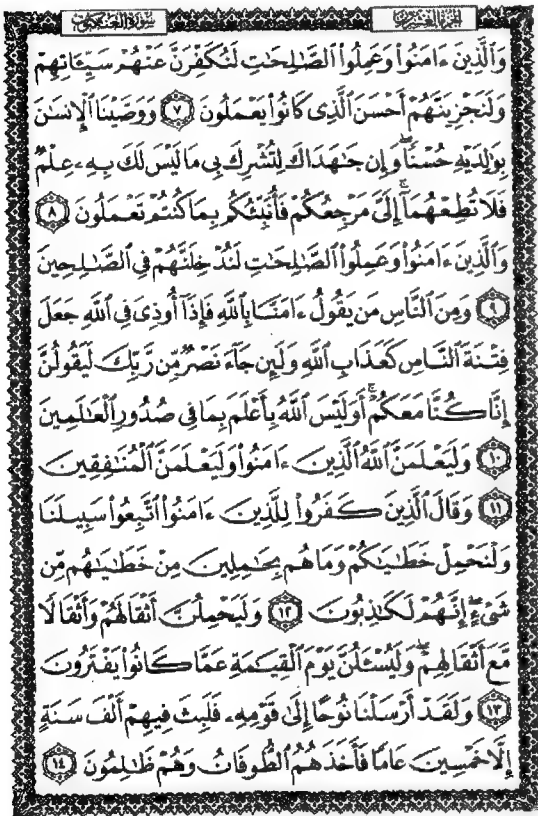 سورة العنكبوت
الجزء العشرون
وَٱلَّذِينَ ءَامَنُوا۟ وَعَمِلُوا۟ ٱلصَّٰلِحَٰتِ لَنُكَفِّرَنَّ عَنْهُمْ سَيِّـَٔاتِهِمْ
وَلَنَجْزِيَنَّهُمْ أَحْسَنَ ٱلَّذِى كَانُوا۟ يَعْمَلُونَ ٧ وَوَصَّيْنَا ٱلْإِنسَٰنَ
بِوَٰلِدَيْهِ حُسْنًا ۖ وَإِن جَٰهَدَاكَ لِتُشْرِكَ بِى مَا لَيْسَ لَكَ بِهِۦ عِلْمٌ
فَلَا تُطِعْهُمَآ ۚ إِلَىَّ مَرْجِعُكُمْ فَأُنَبِّئُكُم بِمَا كُنتُمْ تَعْمَلُونَ ٨
وَٱلَّذِينَ ءَامَنُوا۟ وَعَمِلُوا۟ ٱلصَّٰلِحَٰتِ لَنُدْخِلَنَّهُمْ فِى ٱلصَّٰلِحِينَ
٩ وَمِنَ ٱلنَّاسِ مَن يَقُولُ ءَامَنَّا بِٱللَّهِ فَإِذَآ أُوذِىَ فِى ٱللَّهِ جَعَلَ
فِتْنَةَ ٱلنَّاسِ كَعَذَابِ ٱللَّهِ وَلَئِن جَآءَ نَصْرٌ مِّن رَّبِّكَ لَيَقُولُنَّ
إِنَّا كُنَّا مَعَكُمْ ۚ أَوَلَيْسَ ٱللَّهُ بِأَعْلَمَ بِمَا فِى صُدُورِ ٱلْعَٰلَمِينَ
١٠ وَلَيَعْلَمَنَّ ٱللَّهُ ٱلَّذِينَ ءَامَنُوا۟ وَلَيَعْلَمَنَّ ٱلْمُنَٰفِقِينَ
١١ وَقَالَ ٱلَّذِينَ كَفَرُوا۟ لِلَّذِينَ ءَامَنُوا۟ ٱتَّبِعُوا۟ سَبِيلَنَا
وَلْنَحْمِلْ خَطَٰيَٰكُمْ وَمَا هُم بِحَٰمِلِينَ مِنْ خَطَٰيَٰهُم مِّن
شَىْءٍ ۖ إِنَّهُمْ لَكَٰذِبُونَ ١٢ وَلَيَحْمِلُنَّ أَثْقَالَهُمْ وَأَثْقَالًا
مَّعَ أَثْقَالِهِمْ ۖ وَلَيُسْـَٔلُنَّ يَوْمَ ٱلْقِيَٰمَةِ عَمَّا كَانُوا۟ يَفْتَرُونَ
١٣ وَلَقَدْ أَرْسَلْنَا نُوحًا إِلَىٰ قَوْمِهِۦ فَلَبِثَ فِيهِمْ أَلْفَ سَنَةٍ
إِلَّا خَمْسِينَ عَامًا فَأَخَذَهُمُ ٱلطُّوفَانُ وَهُمْ ظَٰلِمُونَ ١٤